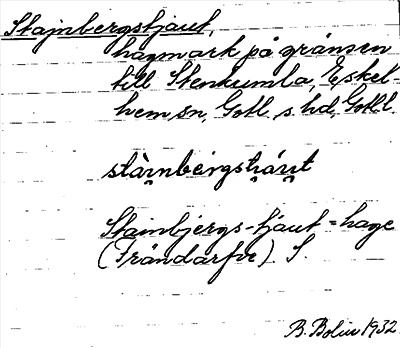 Stajnbergstjaut,
hagmark på gränsen
till Stenkumla, Eskel-
hem sn, Gotl. s. hd, Gotl.
stàinbèrgstjáut
Stainbjergs-tjaut = hage
(Frändarfve). S.
B. Bolin 1932